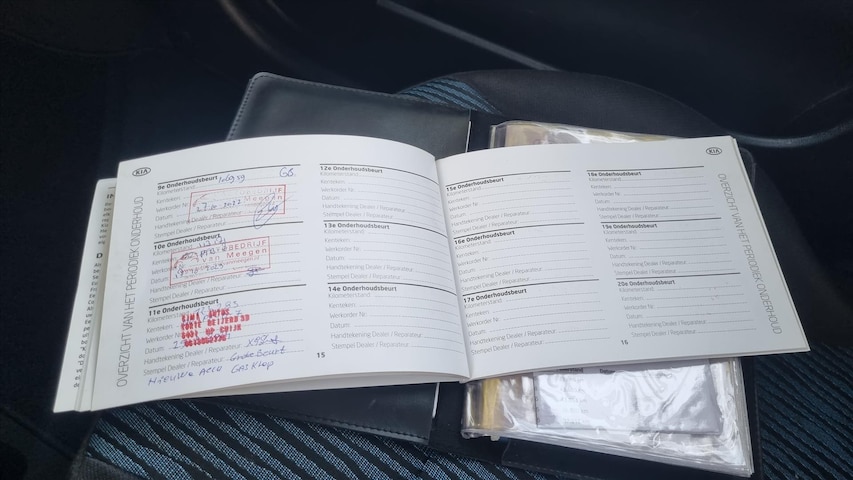 KIA
OVERZICHT VAN HET PERIODIEK ONDERHOUD
9e Onderhoudsbeurt
Kilometerstand
Kenteken
Werkorder Nr
Datum
Handtekening Dealer / Reparateur
Stempel Dealer / Reparateur
10e Onderhoudsbeurt
BEDRIJF
van Meegen
Kilometerstand
Kenteken
Werkorder Nr
Datum
Handtekening Dealer / Reparateur
Stempel Dealer / Reparateur
11e Onderhoudsbeurt
Kilometerstand
Kenteken
Werkorder Nr
Datum
Handtekening Dealer / Reparateur
Stempel Dealer / Reparateur Grote Beurt
Nieuwe Accu Gasklep
12e Onderhoudsbeurt
Kilometerstand
Kenteken
Werkorder Nr
Datum
Handtekening Dealer / Reparateur
Stempel Dealer / Reparateur
13e Onderhoudsbeurt
Kilometerstand
Kenteken
Werkorder Nr
Datum
Handtekening Dealer / Reparateur
Stempel Dealer / Reparateur
14e Onderhoudsbeurt
Kilometerstand
Kenteken
Werkorder Nr
Datum
Handtekening Dealer / Reparateur
Stempel Dealer / Reparateur
15
15e Onderhoudsbeurt
Kilometerstand
Kenteken
Werkorder Nr
Datum
Handtekening Dealer / Reparateur
Stempel Dealer / Reparateur
16e Onderhoudsbeurt
Kilometerstand
Kenteken
Werkorder Nr
Datum
Handtekening Dealer / Reparateur
Stempel Dealer / Reparateur
17e Onderhoudsbeurt
Kilometerstand
Kenteken
Werkorder Nr
Datum
Handtekening Dealer / Reparateur
Stempel Dealer / Reparateur
18e Onderhoudsbeurt
Kilometerstand
Kenteken
Werkorder Nr
Datum
Handtekening Dealer / Reparateur
Stempel Dealer / Reparateur
19e Onderhoudsbeurt
Kilometerstand
Kenteken
Werkorder Nr
Datum
Handtekening Dealer / Reparateur
Stempel Dealer / Reparateur
20e Onderhoudsbeurt
Kilometerstand
Kenteken
Werkorder Nr
Datum
Handtekening Dealer / Reparateur
Stempel Dealer / Reparateur
16
KIA
OVERZICHT VAN HET PERIODIEK ONDERHOUD